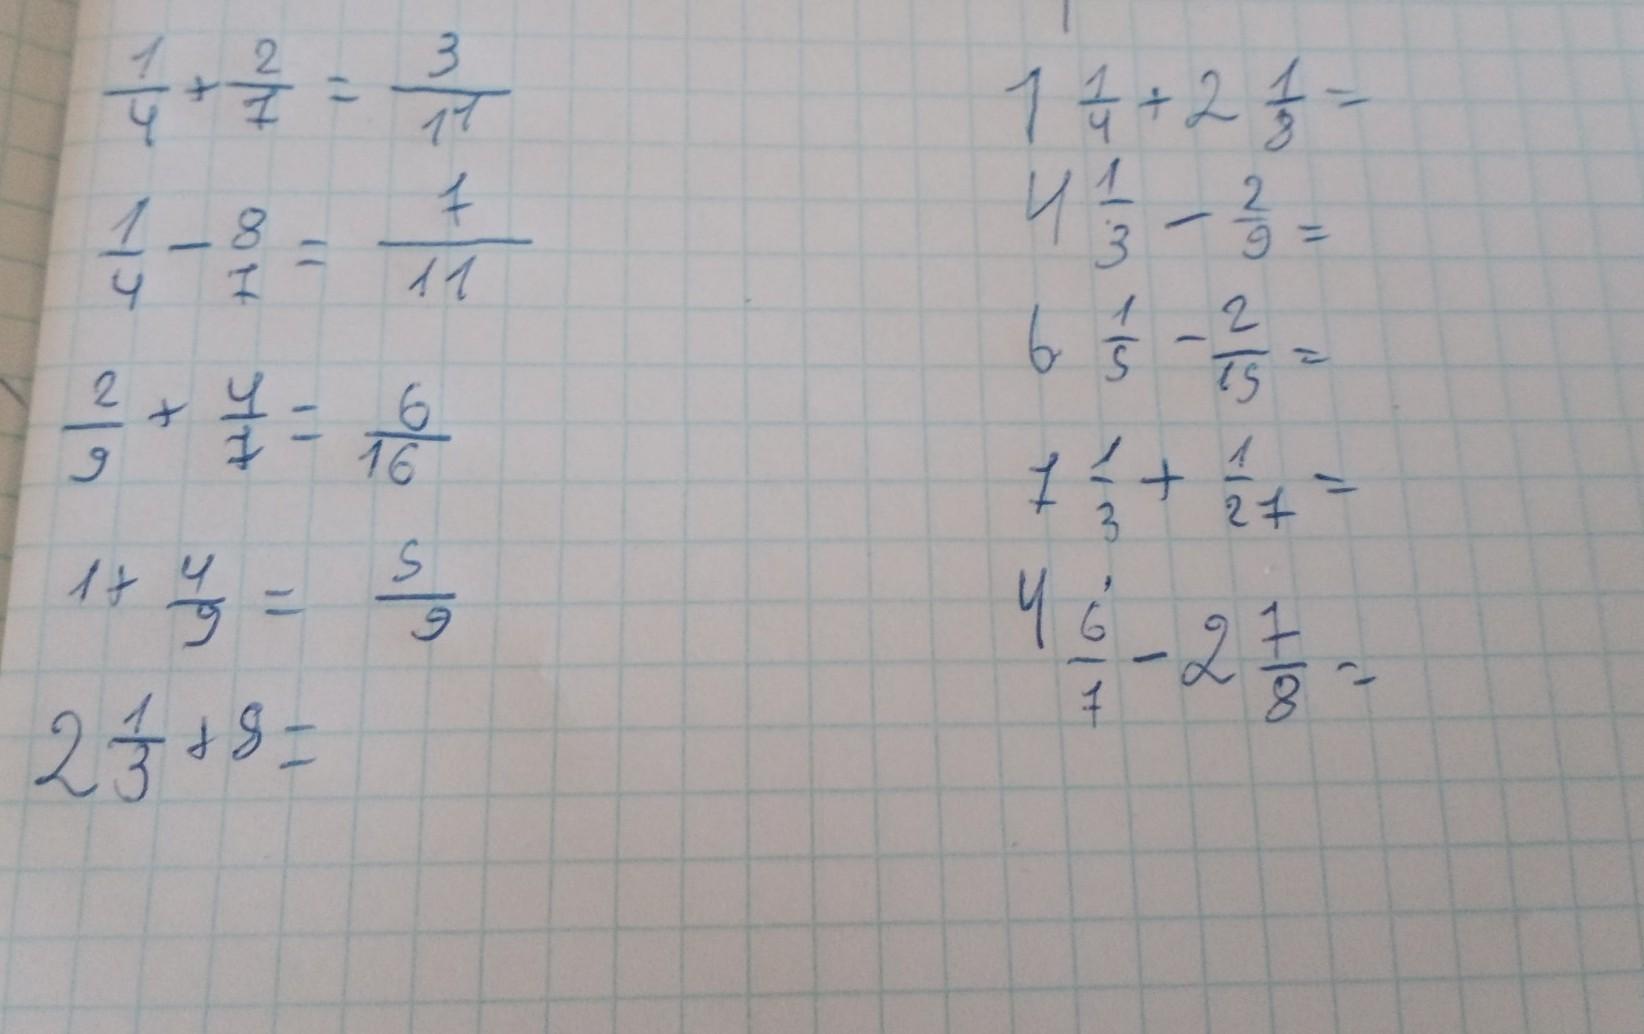 1/4 + 2/7 = 3/11
1/4 - 8/7 = 7/11
2/9 + 4/7 = 6/16
1 + 4/9 = 5/9
2 1/3 + 8 =
1 1/4 + 2 1/3 =
4 1/3 - 2/9 =
6 1/5 - 2/15 =
7 1/3 + 1/27 =
4 6/7 - 2 7/8 =